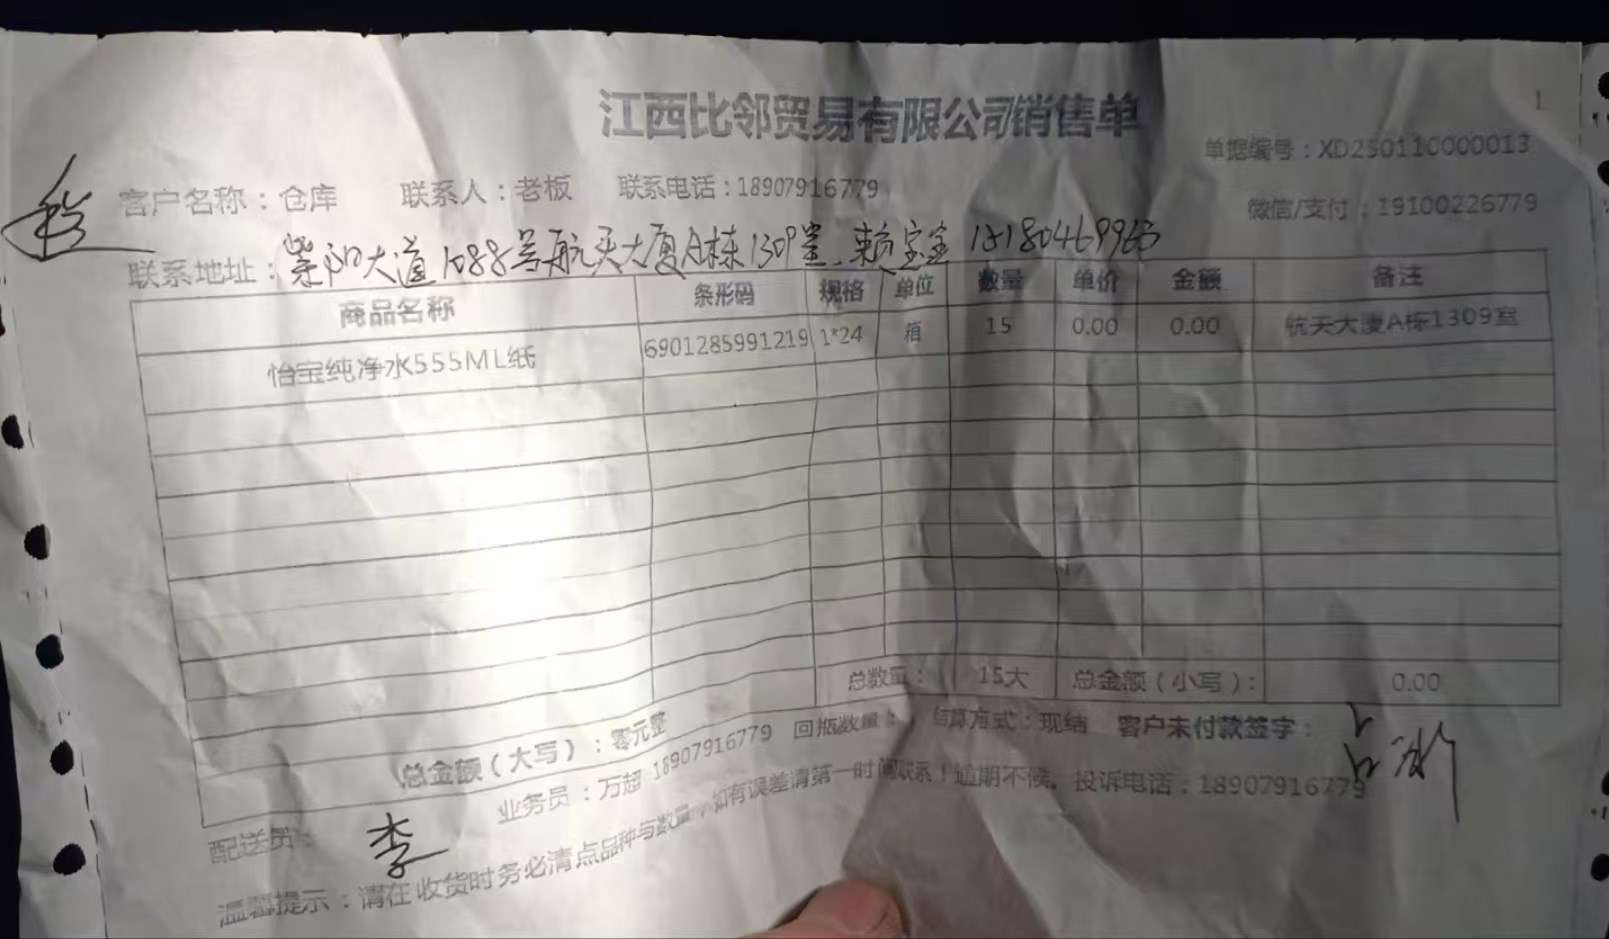 江西比邻贸易有限公司销售单
1
单据编号：XD250110000013
客户名称：仓库 联系人：老板 联系电话：18907916779
微信/支付：19100226779
联系地址：紫阳大道1088号航天大厦A栋1309室 赖宝宝 18180469963
商品名称 条形码 规格 单位 数量 单价 金额 备注
怡宝纯净水555ML纸 6901285991219 1*24 箱 15 0.00 0.00 航天大厦A栋1309室
总数量： 15大 总金额（小写）： 0.00
总金额（大写）：零元整
业务员：万超 18907916779 回瓶数量： 结算方式：现结 客户未付款签字：
配送员： 李
温馨提示：请在收货时务必清点品种与数量，如有误差请第一时间联系！逾期不候。投诉电话：18907916779